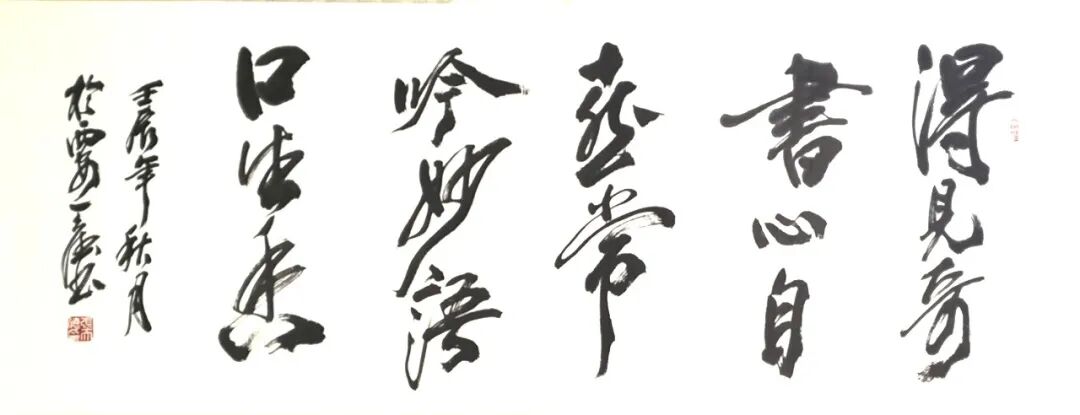 得見奇
書心自
常
吟妙語
口生香
壬辰年秋月
於西安